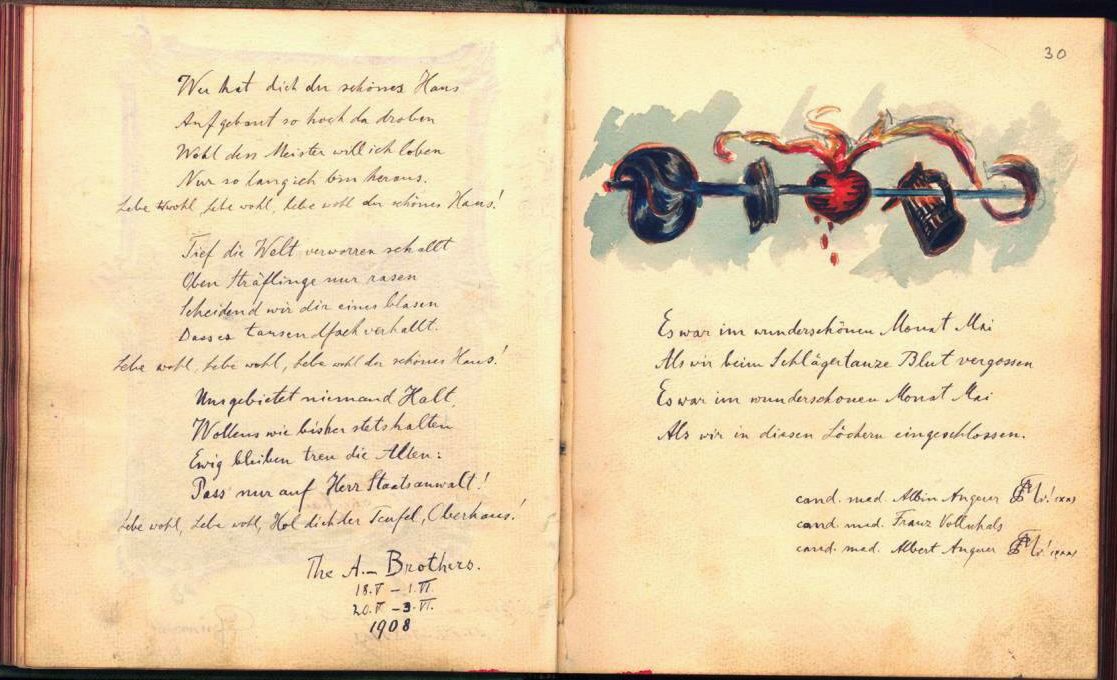 Wer hat dich du schönes Haus
Aufgebaut so hoch da droben
Wohl den Meister will ich loben
Nur so lang ich bin heraus.
Lebe wohl, lebe wohl, lebe wohl du schönes Haus!
Tief die Welt verworren schallt
Oben Sträflinge nur rasen
Scheidend wir dir eines blasen
Dass es tausendfach verhallt.
Lebe wohl, lebe wohl, lebe wohl du schönes Haus!
Uns gebietet niemand Halt,
Wollens wie bisher stets halten
Ewig bleiben treu die Alten:
Pass nur auf Herr Staatsanwalt!
Lebe wohl, Lebe wohl, Hol dich der Teufel, Oberhaus!
The A.– Brothers.
18.V – 1.VI.
20.V – 3.VI.
1908
30
Es war im wunderschönen Monat Mai
Als wir beim Schlägertanze Blut vergossen
Es war im wunderschonen Monat Mai
Als wir in diesen Löchern eingeschlossen.
cand. med. Albin Angerer
cand. med. Franz Vollnhals
cand. med. Albert Angerer